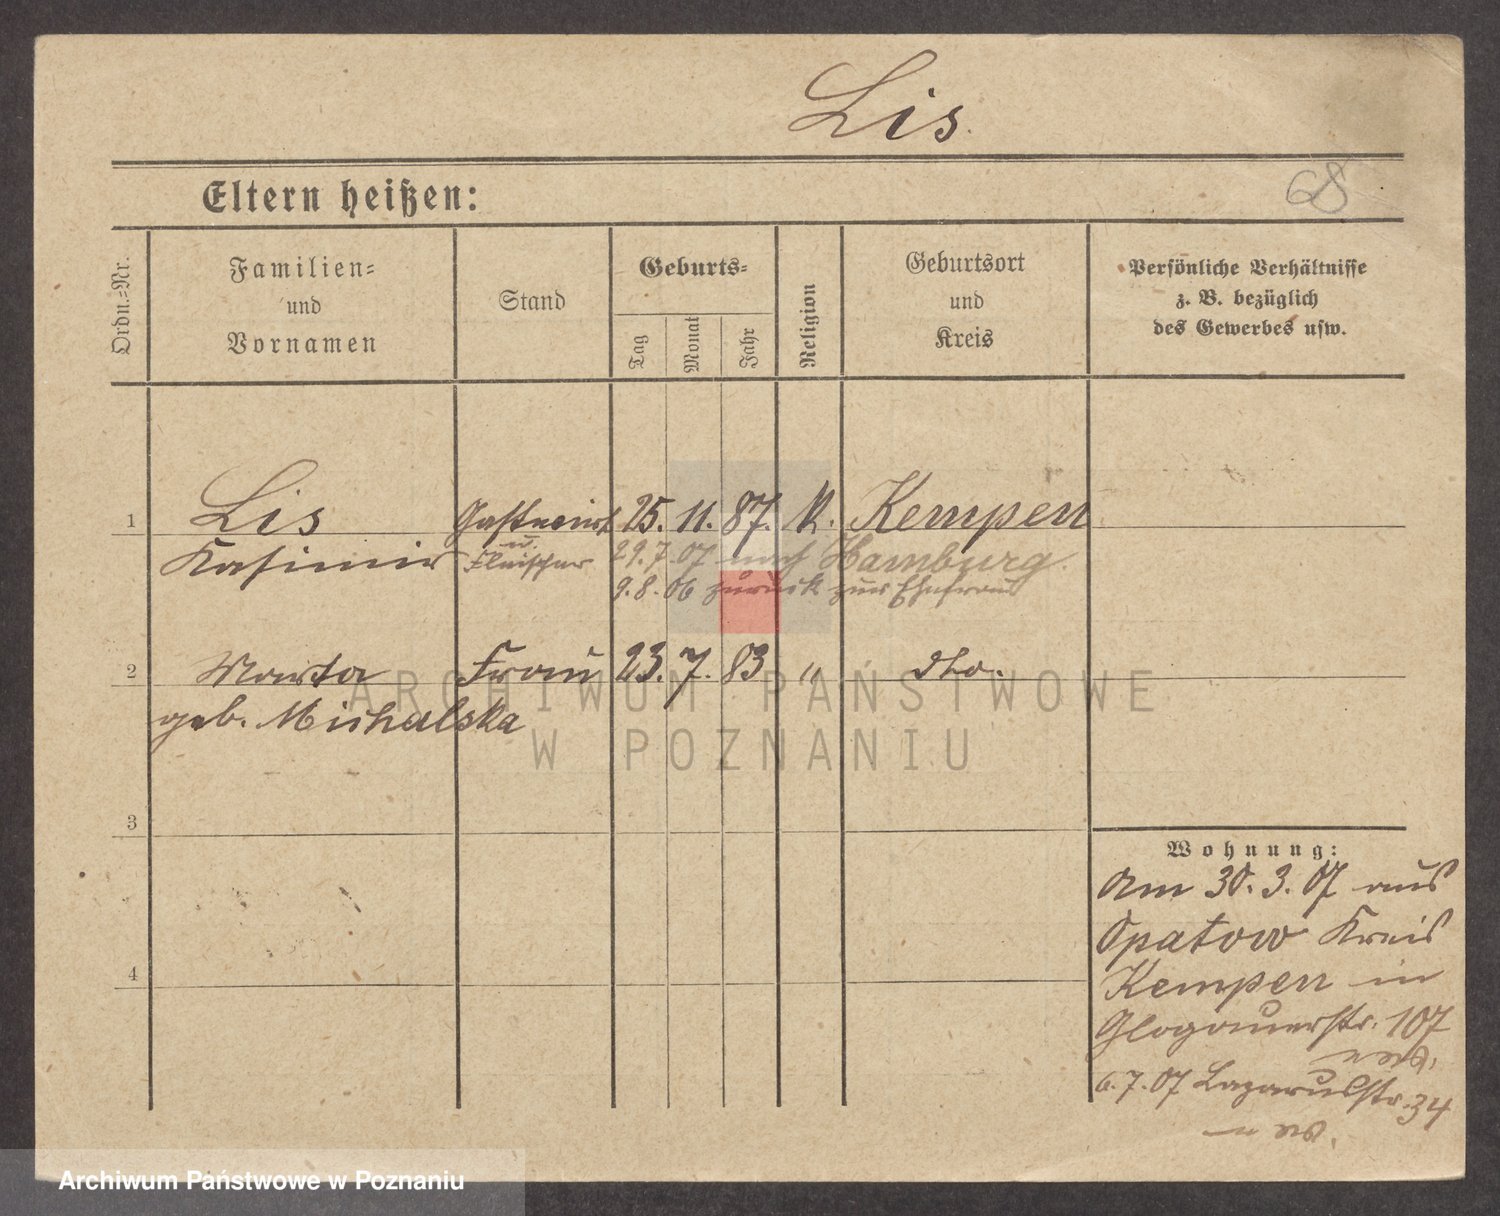 Lis.
68
Eltern heißen:
Ordn.-Nr.
Familien-
und
Vornamen
Stand
Geburts-
Tag
Monat
Jahr
Religion
Geburtsort
und
Kreis
Persönliche Verhältnisse
z. B. bezüglich
des Gewerbes usw.
1 Lis Gastwirt 25. 11. 87. K. Kempen
Kasimir u. Fleischer 29.7.07 nach Hamburg.
9.8.06 zurück zur Ehefrau
2 Marta Frau 23. 7. 83 " dto.
geb. Michalska
ARCHIWUM PAŃSTWOWE
W POZNANIU
3
4
Wohnung:
Am 30.3.07 aus
Opatow Kreis
Kempen in
Glogauerstr. 107
6.7.07 Lazarusstr. 34
Archiwum Państwowe w Poznaniu